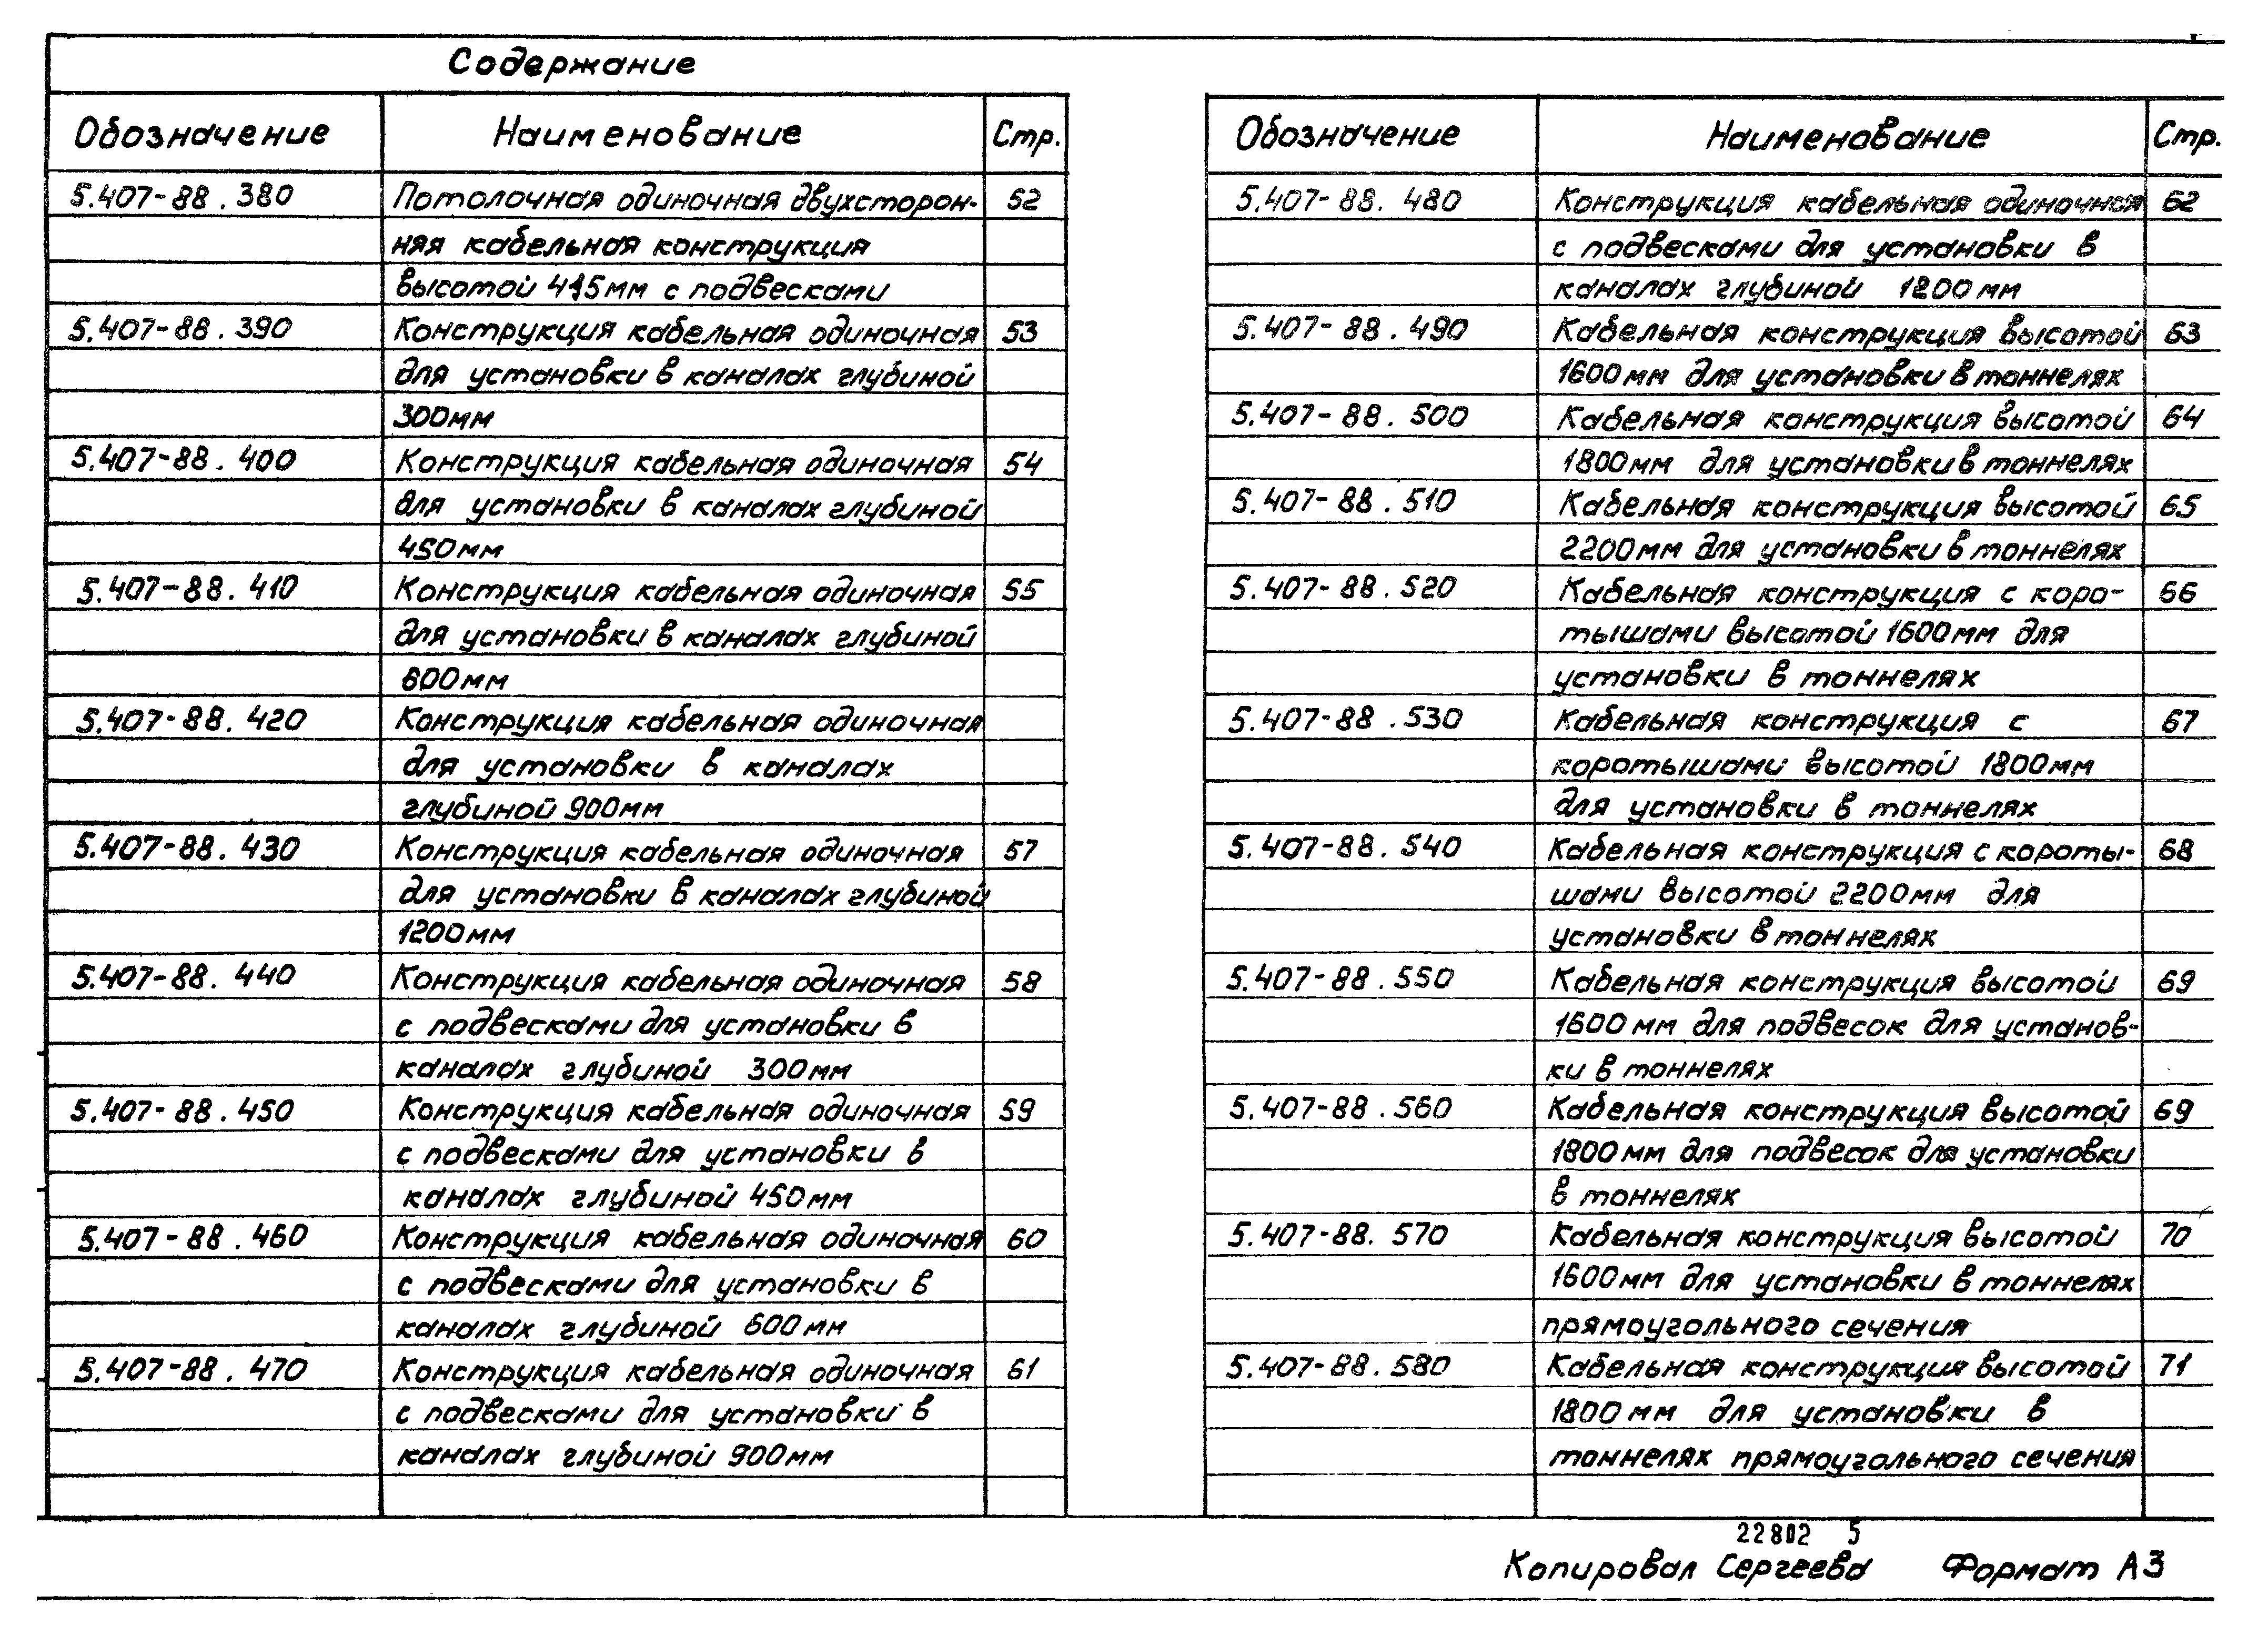 Содержание
Обозначение Наименование Стр.
5.407-88.380 Потолочная одиночная двухсторон- 52
няя кабельная конструкция
высотой 415мм с подвесками
5.407-88.390 Конструкция кабельная одиночная 53
для установки в каналах глубиной
300мм
5.407-88.400 Конструкция кабельная одиночная 54
для установки в каналах глубиной
450мм
5.407-88.410 Конструкция кабельная одиночная 55
для установки в каналах глубиной
600мм
5.407-88.420 Конструкция кабельная одиночная
для установки в каналах
глубиной 900мм
5.407-88.430 Конструкция кабельная одиночная 57
для установки в каналах глубиной
1200мм
5.407-88.440 Конструкция кабельная одиночная 58
с подвесками для установки в
каналах глубиной 300мм
5.407-88.450 Конструкция кабельная одиночная 59
с подвесками для установки в
каналах глубиной 450мм
5.407-88.460 Конструкция кабельная одиночная 60
с подвесками для установки в
каналах глубиной 600мм
5.407-88.470 Конструкция кабельная одиночная 61
с подвесками для установки в
каналах глубиной 900мм
Обозначение Наименование Стр.
5.407-88.480 Конструкция кабельная одиночная 62
с подвесками для установки в
каналах глубиной 1200мм
5.407-88.490 Кабельная конструкция высотой 63
1600мм для установки в тоннелях
5.407-88.500 Кабельная конструкция высотой 64
1800мм для установки в тоннелях
5.407-88.510 Кабельная конструкция высотой 65
2200мм для установки в тоннелях
5.407-88.520 Кабельная конструкция с коро- 66
тышами высотой 1600мм для
установки в тоннелях
5.407-88.530 Кабельная конструкция с 67
коротышами высотой 1800мм
для установки в тоннелях
5.407-88.540 Кабельная конструкция с короты- 68
шами высотой 2200мм для
установки в тоннелях
5.407-88.550 Кабельная конструкция высотой 69
1600мм для подвесок для установ-
ки в тоннелях
5.407-88.560 Кабельная конструкция высотой 69
1800мм для подвесок для установки
в тоннелях
5.407-88.570 Кабельная конструкция высотой 70
1600мм для установки в тоннелях
прямоугольного сечения
5.407-88.580 Кабельная конструкция высотой 71
1800мм для установки в
тоннелях прямоугольного сечения
22802 5
Копировал Сергеева Формат А3